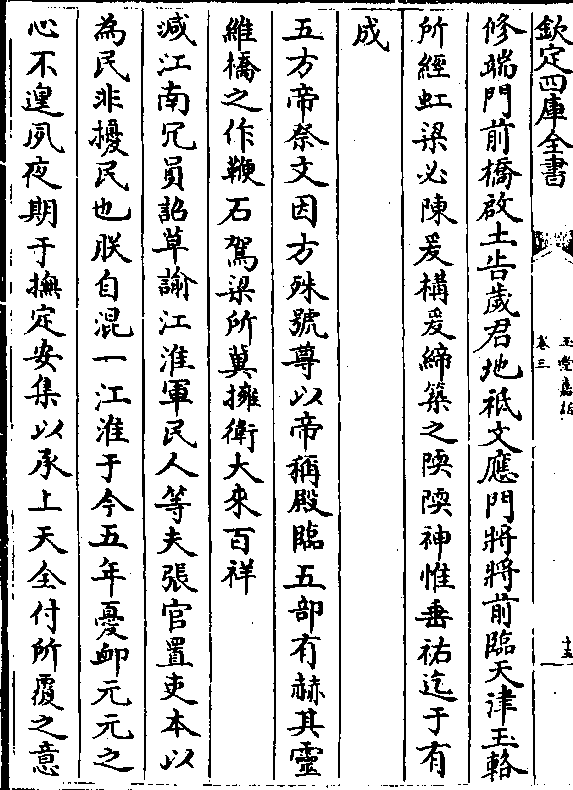 欽定四庫全書
玉堂嘉話
卷三
十三
修端門前橋啟土告歲君地祇文應門將將前臨天津玉輅
所經虹梁必陳爰構爰締築之陾陾神惟垂祐迄于有
成
五方帝祭文因方殊號尊以帝稱殿臨五部有赫其靈
維橋之作鞭石駕梁所冀擁衛大來百祥
減江南冗員詔草諭江淮軍民人等夫張官置吏本以
為民非擾民也朕自混一江淮于今五年憂䘏元元之
心不遑夙夜期于撫定安集以承上天全付所覆之意